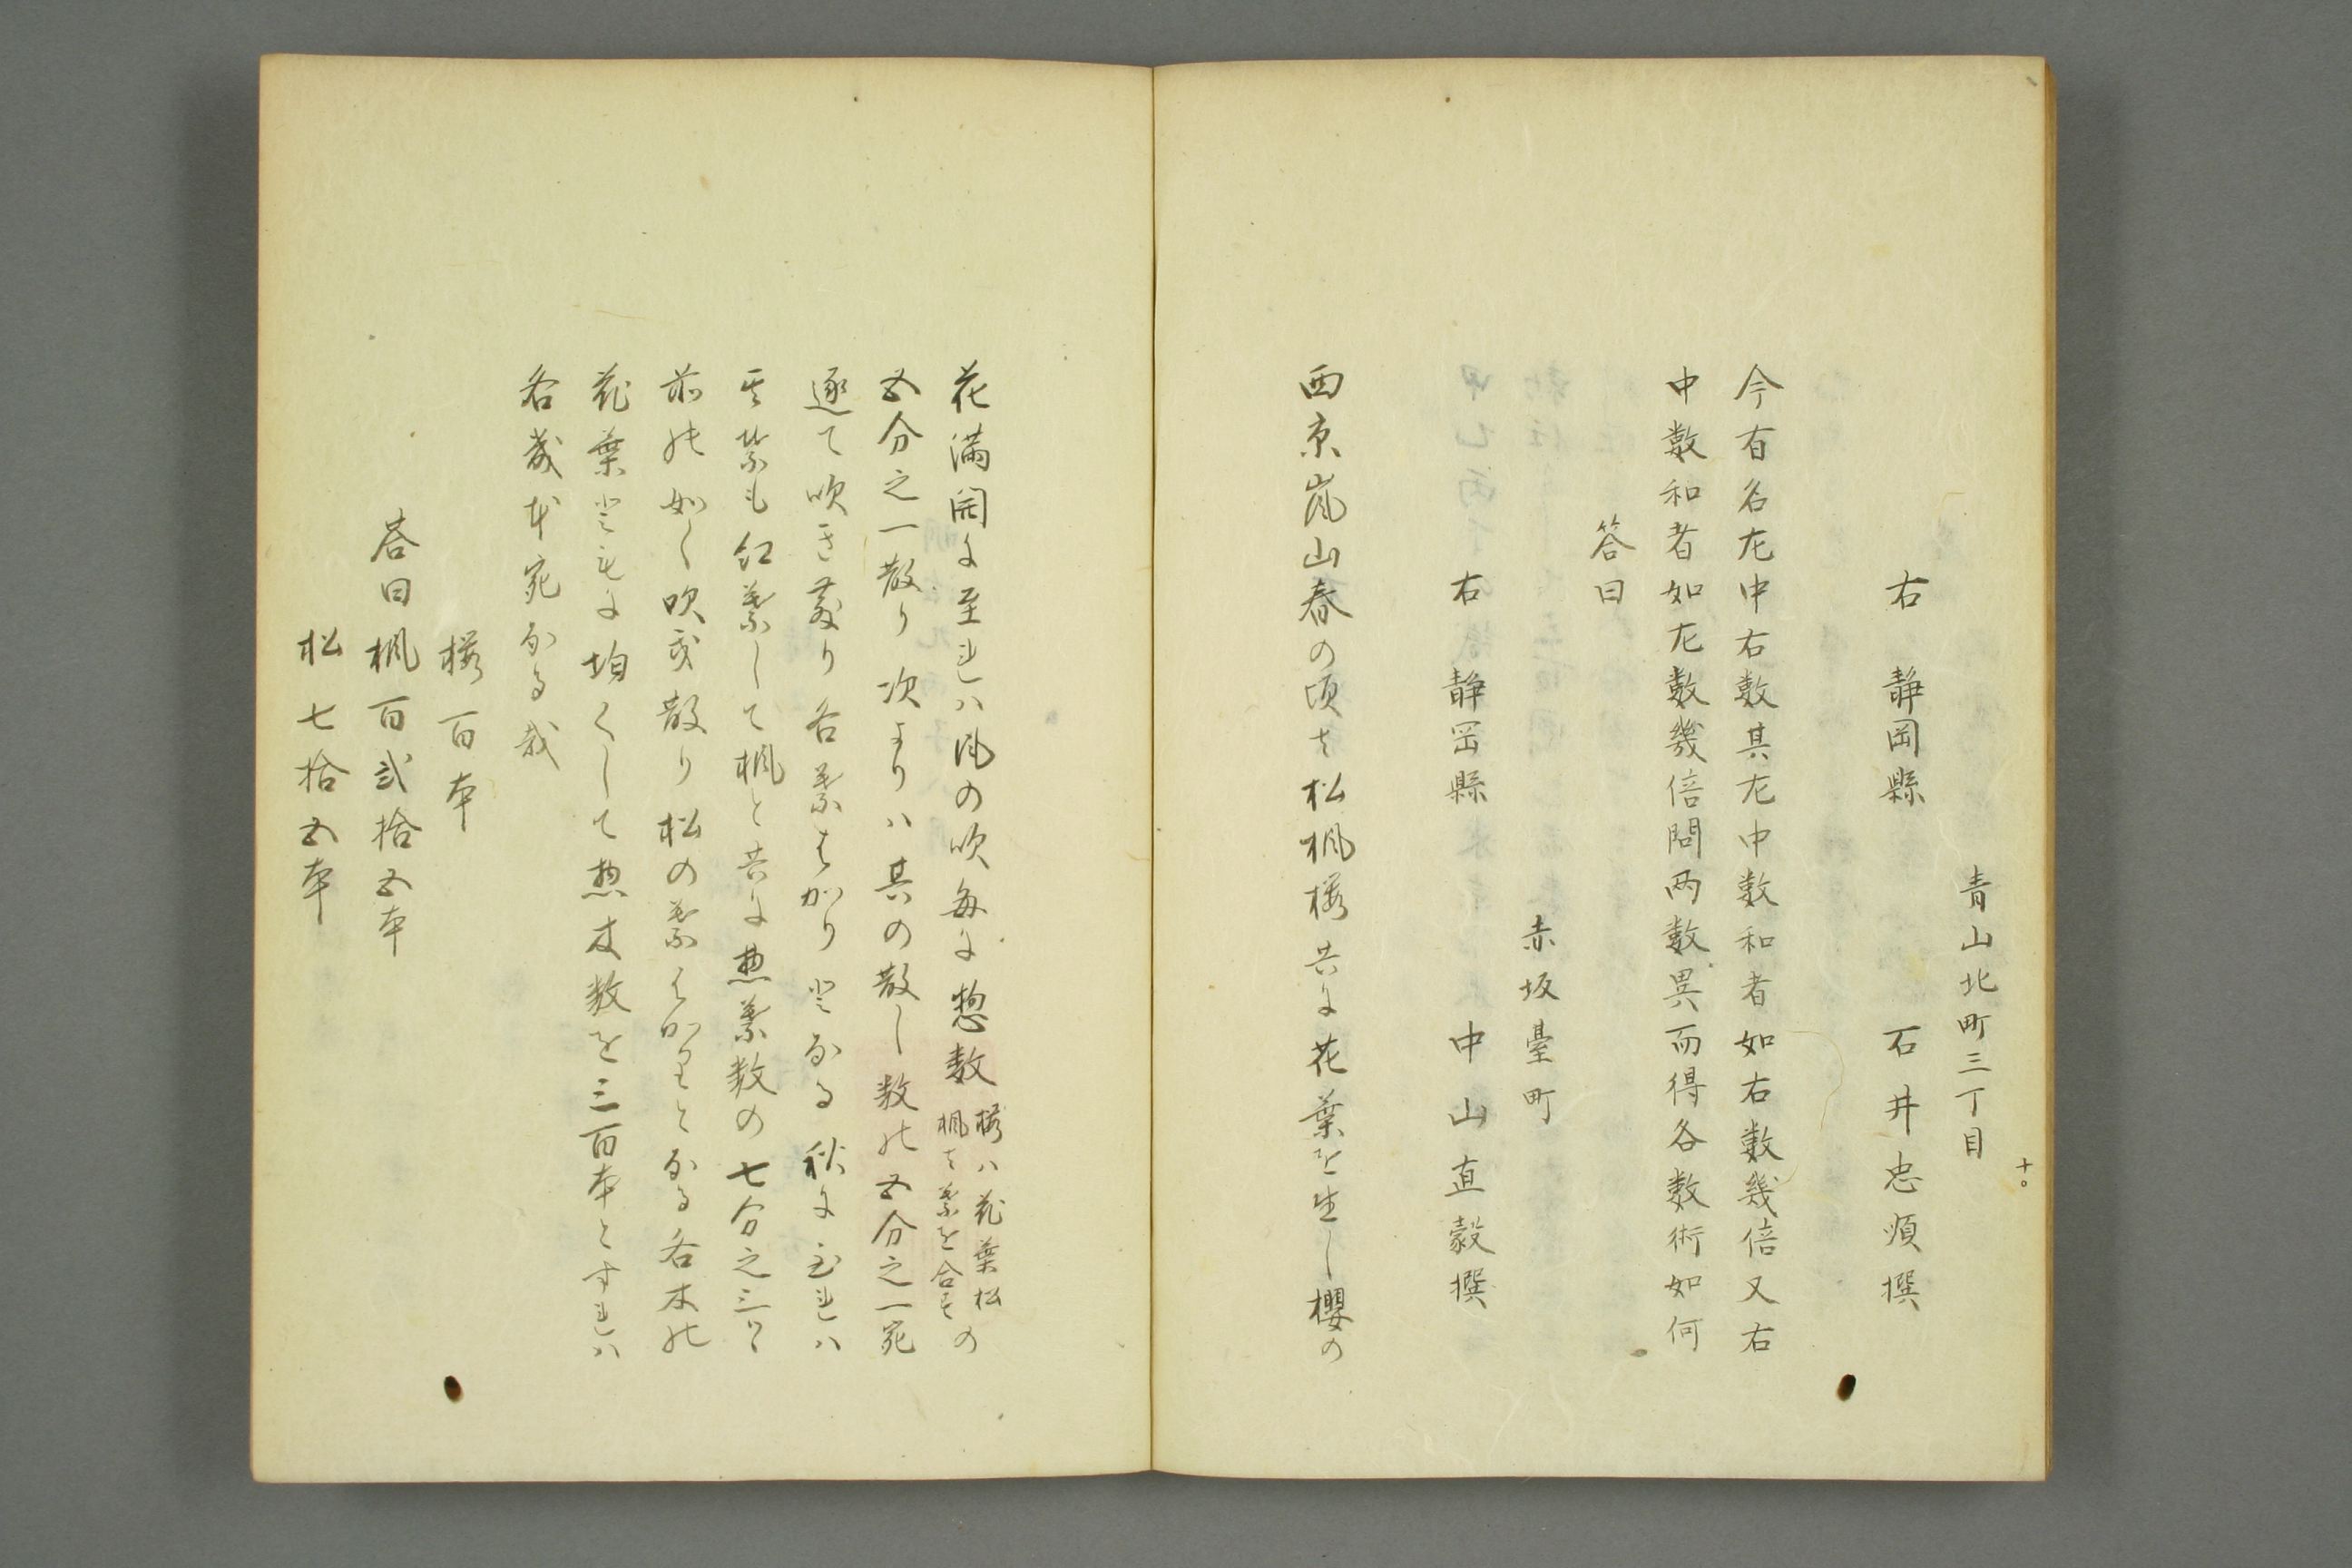 十。
青山北町三丁目
右 静岡縣 石井忠順撰
今有名左中右数其左中数和者如右数幾倍又右
中数和者如左数幾倍問両数異而得各数術如何
答曰
赤坂臺町
右 静岡縣 中山直毅撰
西京嵐山春の頃ハ松楓桜共に花葉を生し櫻の
花満開に至れハ風の吹毎に惣数 桜ハ花葉松
楓ハ葉を合す の
五分之一散り次よりハ其の散し数の五分之一宛
逐て吹き散り各葉はかりとなる秋に至れハ
其葉も紅葉して楓と共に惣葉数の七分之三つゝ
前の如く吹散り松の葉はかりとなる各木の
花葉ともに均くして惣木数を三百本とすれハ
各幾本宛なる哉
桜百本
答曰楓百弐拾五本
松七拾五本